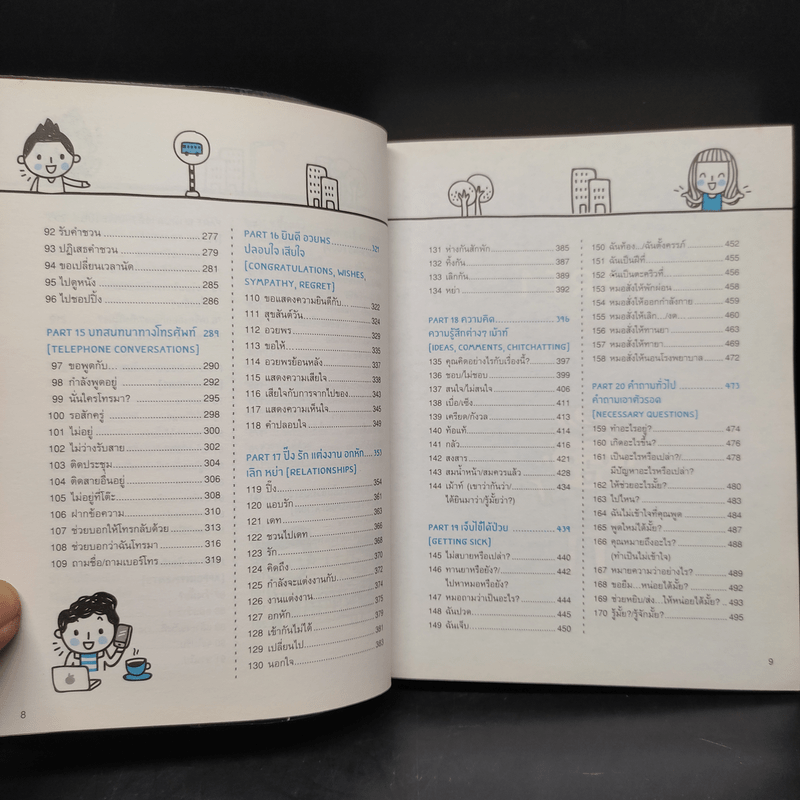 92 รับคำชวน ........ 277
93 ปฏิเสธคำชวน ........ 279
94 ขอเปลี่ยนเวลานัด ........ 281
95 ไปดูหนัง ........ 285
96 ไปชอปปิ้ง ........ 286
PART 15 บทสนทนาทางโทรศัพท์ 289
[TELEPHONE CONVERSATIONS]
97 ขอพูดกับ... ........ 290
98 กำลังพูดอยู่ ........ 292
99 นั่นใครโทรมา? ........ 295
100 รอสักครู่ ........ 298
101 ไม่อยู่ ........ 300
102 ไม่ว่างรับสาย ........ 302
103 ติดประชุม ........ 304
104 ติดสายอื่นอยู่ ........ 306
105 ไม่อยู่ที่โต๊ะ ........ 308
106 ฝากข้อความ ........ 310
107 ช่วยบอกให้โทรกลับด้วย ........ 313
108 ช่วยบอกว่าฉันโทรมา ........ 316
109 ถามชื่อ/ถามเบอร์โทร ........ 319
8
PART 16 ยินดี อวยพร ........ 321
ปลอบใจ เสียใจ
[CONGRATULATIONS, WISHES,
SYMPATHY, REGRET]
110 ขอแสดงความยินดีกับ ........ 322
111 สุขสันต์วัน ........ 324
112 อวยพร ........ 329
113 ขอให้ ........ 335
114 อวยพรย้อนหลัง ........ 337
115 แสดงความเสียใจ ........ 341
116 เสียใจกับการจากไปของ ........ 343
117 แสดงความเห็นใจ ........ 345
118 คำปลอบใจ ........ 348
PART 17 ปิ๊ง รัก แต่งงาน อกหัก 353
เลิก หย่า [RELATIONSHIPS]
119 ปิ๊ง ........ 354
120 แอบรัก ........ 361
121 เดท ........ 363
122 ชวนไปเดท ........ 366
123 รัก ........ 367
124 คิดถึง ........ 370
125 กำลังจะแต่งงานกับ ........ 372
126 งานแต่งงาน ........ 375
127 อกหัก ........ 379
128 เข้ากันไม่ได้ ........ 381
129 เปลี่ยนไป ........
130 นอกใจ ........ 383
131 ห่างกันสักพัก ........ 385
132 ทิ้งกัน ........ 387
133 เลิกกัน ........ 389
134 หย่า ........ 392
PART 18 ความคิด ........ 396
ความรู้สึกต่างๆ เม้าท์
[IDEAS, COMMENTS, CHITCHATTING]
135 คุณคิดอย่างไรกับเรื่องนี้? ........ 397
136 ชอบ/ไม่ชอบ ........ 399
137 สนใจ/ไม่สนใจ ........ 406
138 เบื่อ/เซ็ง ........ 411
139 เครียด/กังวล ........ 413
140 ท้อแท้ ........ 414
141 กลัว ........ 416
142 สงสาร ........ 421
143 สมน้ำหน้า/สมควรแล้ว ........ 428
144 เม้าท์ (เขาว่ากันว่า/ ........ 434
ได้ยินมาว่า/รู้มั้ยว่า?)
PART 19 เจ็บไข้ได้ป่วย ........ 439
[GETTING SICK]
145 ไม่สบายหรือเปล่า? ........ 440
146 ทานยาหรือยัง?/ ........ 442
ไปหาหมอหรือยัง?
147 หมอถามว่าเป็นอะไร? ........ 444
148 ฉันปวด ........ 445
149 ฉันเจ็บ ........ 450
150 ฉันท้อง.../ฉันตั้งครรภ์ ........ 452
151 ฉันเป็นฝีที่ ........ 455
152 ฉันเป็นตะคริวที่ ........ 456
153 หมอสั่งให้พักผ่อน ........ 457
154 หมอสั่งให้ออกกำลังกาย ........ 458
155 หมอสั่งให้เลิก.../งด ........ 459
156 หมอสั่งให้ทานยา ........ 460
157 หมอสั่งให้ทายา ........ 463
158 หมอสั่งให้นอนโรงพยาบาล ........ 472
PART 20 คำถามทั่วไป ........ 473
คำถามเอาตัวรอด
[NECESSARY QUESTIONS]
159 ทำอะไรอยู่? ........ 474
160 เกิดอะไรขึ้น? ........ 476
161 เป็นอะไรหรือเปล่า?/ ........ 478
มีปัญหาอะไรหรือเปล่า?
162 ให้ช่วยอะไรมั้ย? ........ 480
163 ไปไหน? ........ 483
164 ฉันไม่เข้าใจที่คุณพูด ........ 484
165 พูดใหม่ได้มั้ย? ........ 487
166 คุณหมายถึงอะไร? ........ 488
(ทำเป็นไม่เข้าใจ)
167 หมายความว่าอย่างไร? ........ 489
168 ขอยืม...หน่อยได้มั้ย? ........ 491
169 ช่วยหยิบ/ส่ง...ให้หน่อยได้มั้ย? ........ 493
170 รู้มั้ย?/รู้จักมั้ย? ........ 495
9